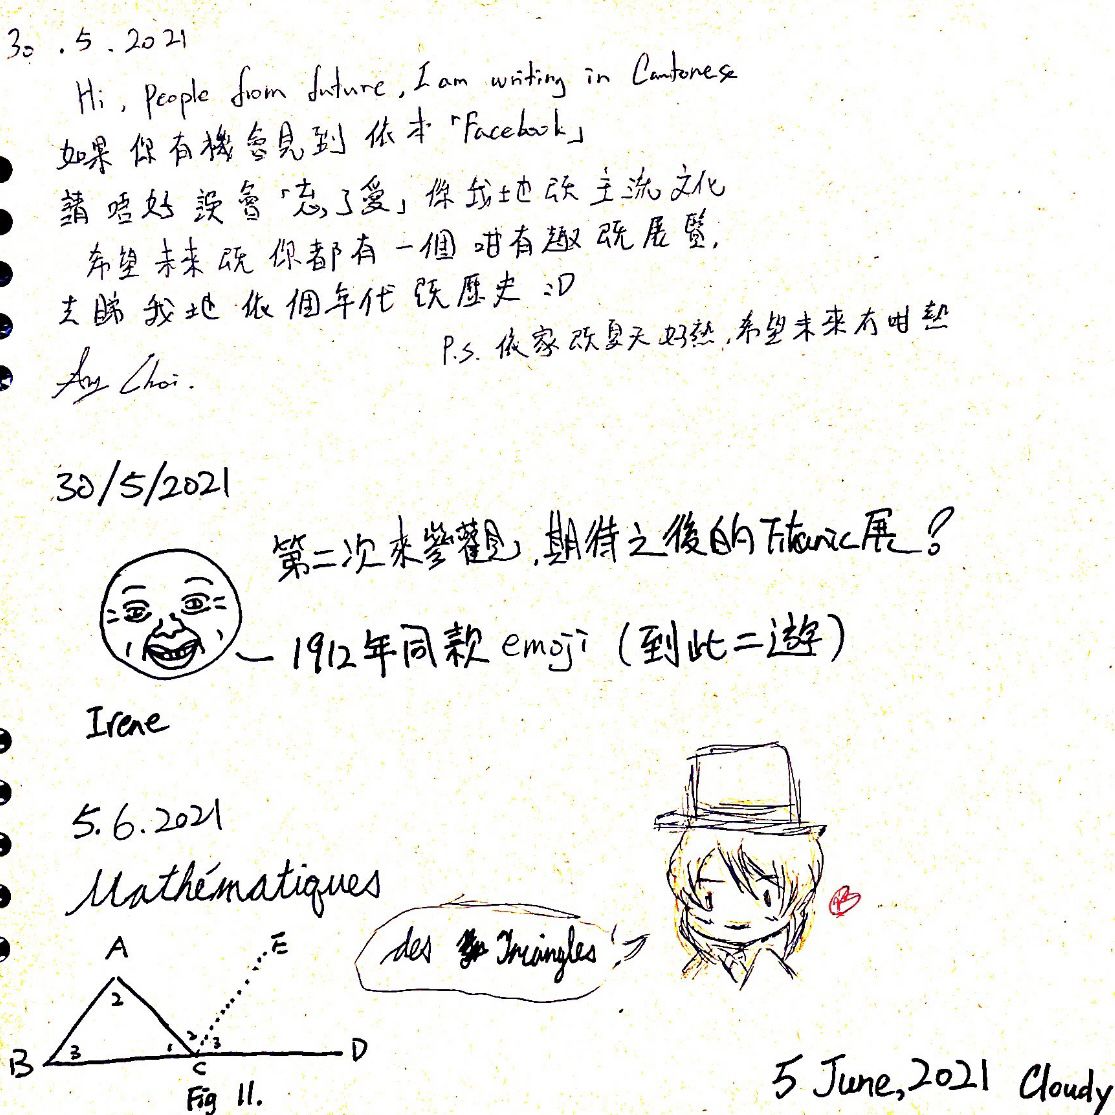 30.5.2021
Hi, people from future, I am writing in Cantonese
如果你有機會見到依本「Facebook」
請唔好誤會「忘了愛」係我地既主流文化
希望未來既你都有一個咁有趣既展覽,
去睇我地依個年代既歷史 :D
P.S. 依家既夏天好熱,希望未來冇咁熱
Choi.
30/5/2021
第二次來參觀,期待之後的Titanic展?
1912年同款emoji(到此二遊)
Irene
5.6.2021
Mathématiques
des Triangles!
A
E
2
B
3
1
2
3
C
D
Fig 11.
5 June, 2021 Cloudy